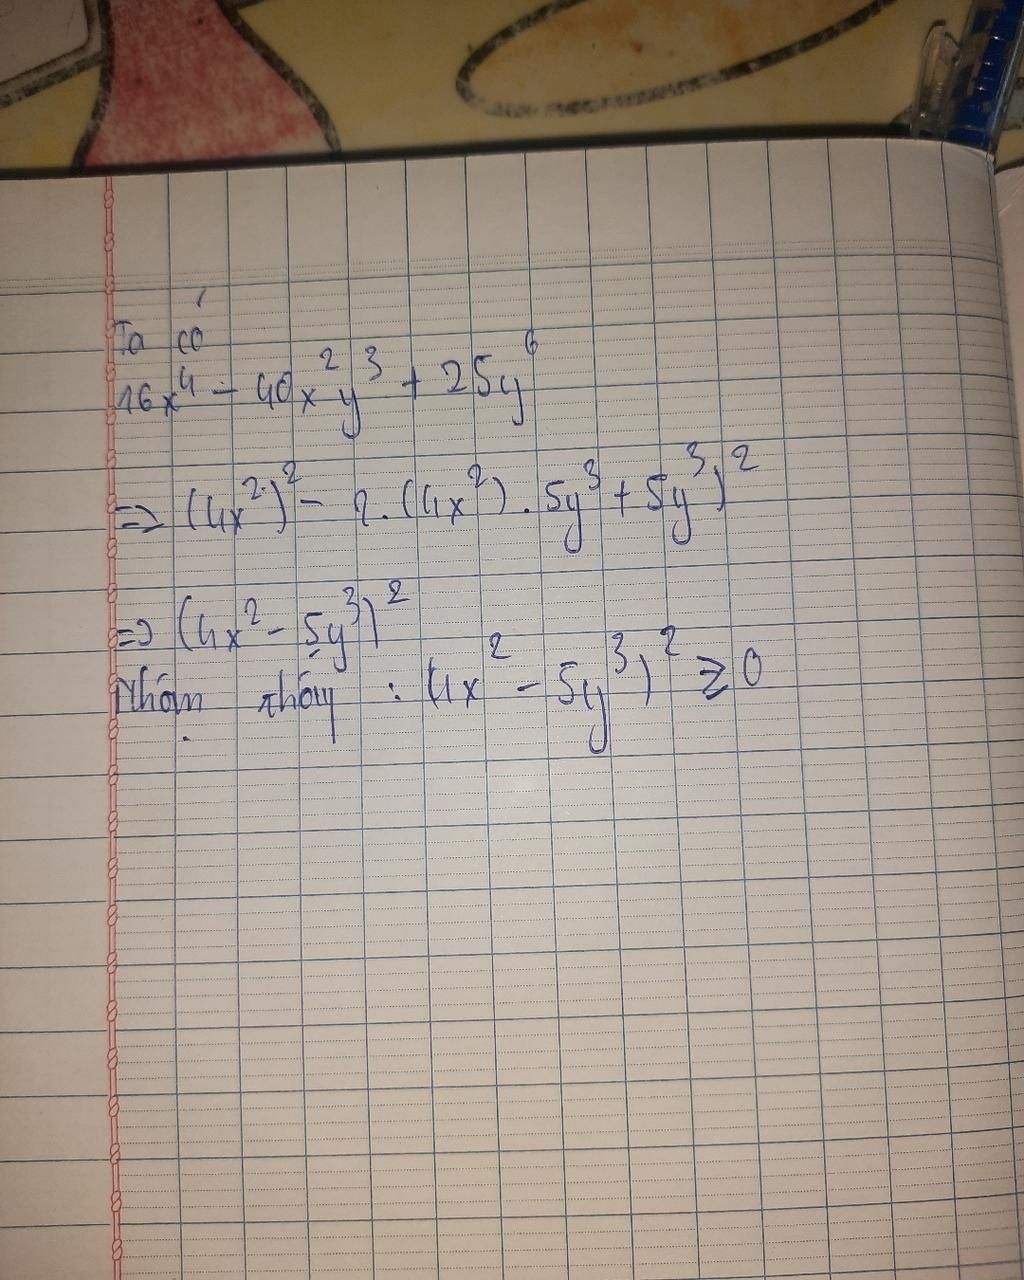 Ta có
16x⁴ - 40x²y³ + 25y⁶
=> (4x²)² - 2.(4x²).5y³ + 5y³)²
=> (4x² - 5y³)²
Nhận thấy : (4x² - 5y³)² ≥ 0